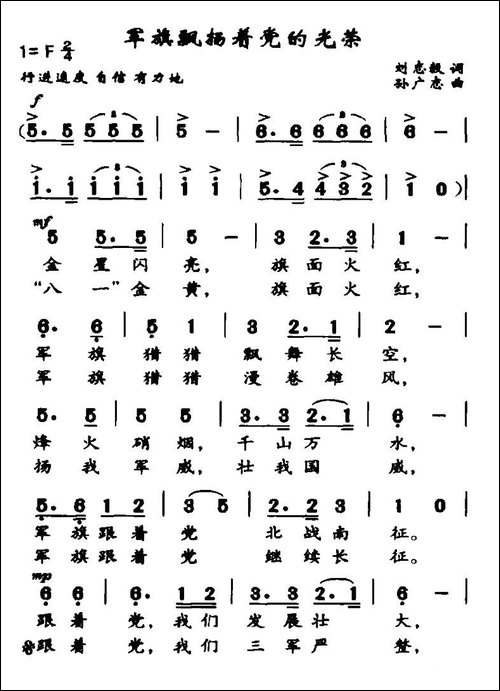 军旗飘扬着党的光荣
1=F 2/4
行进速度 自信 有力地
刘志毅 词
孙广志 曲
f
(5. 5 5 5 5 | 5 - | 6. 6 6 6 6 | 6 - |
i. i i i i | i i | 5. 4 4 3 2 | 1 0) |
mf
5 5. 5 | 5 - | 3 2. 3 | 1 - |
金 星 闪 亮, 旗 面 火 红,
“八 一”金 黄, 旗 面 火 红,
6. 6 | 5 1 | 3 2. 1 | 2 - |
军 旗 猎猎 飘 舞 长 空,
军 旗 猎猎 漫 卷 雄 风,
5. 5 | 5 5 | 3. 3 2. 1 | 6 - |
烽 火 硝 烟, 千 山 万 水,
扬 我 军 威, 壮 我 国 威,
5. 6 1 2 | 3 5 | 2. 2 3 | 1 0 |
军 旗 跟 着 党 北 战 南 征。
军 旗 跟 着 党 继 续 长 征。
mp
6 6 | 6. 1 2 | 3. 3 2. 1 | 6 - |
跟 着 党, 我 们 发 展 壮 大,
※跟 着 党, 我 们 三 军 严 整,